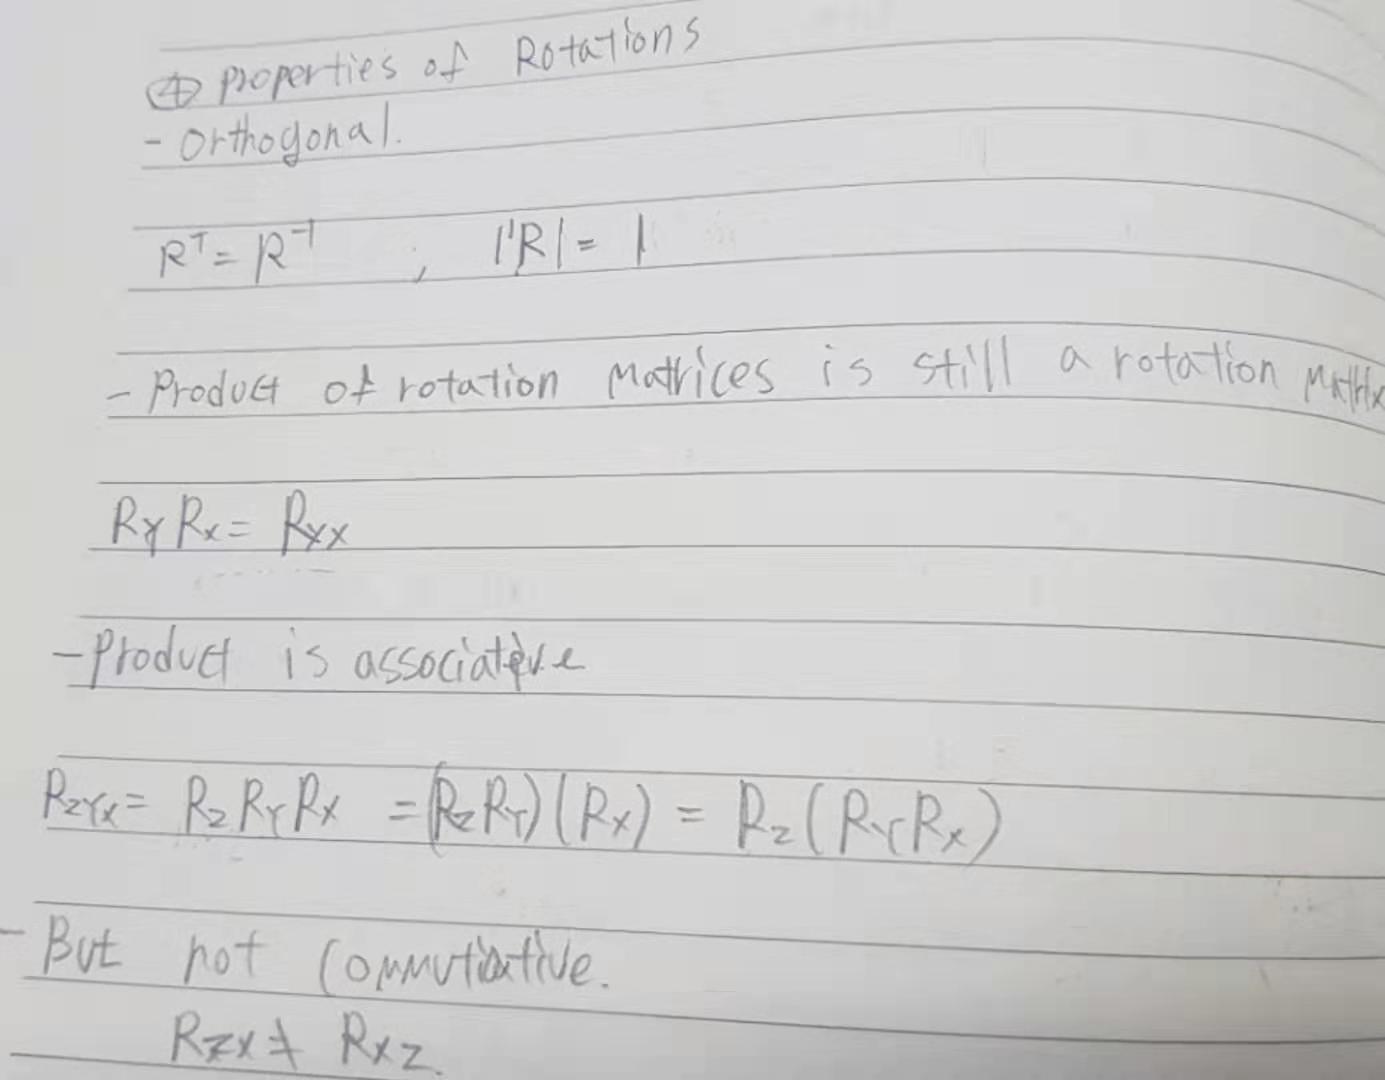 ④ properties of Rotations
- Orthogonal.
Rᵀ = R⁻¹ , |R| = 1
- Product of rotation Matrices is still a rotation Matrix
R_Y R_X = R_YX
- Product is associative
R_ZYX = R_Z R_Y R_X = (R_Z R_Y)(R_X) = R_Z(R_Y R_X)
- But not Commutiative.
R_ZX ≠ R_XZ.